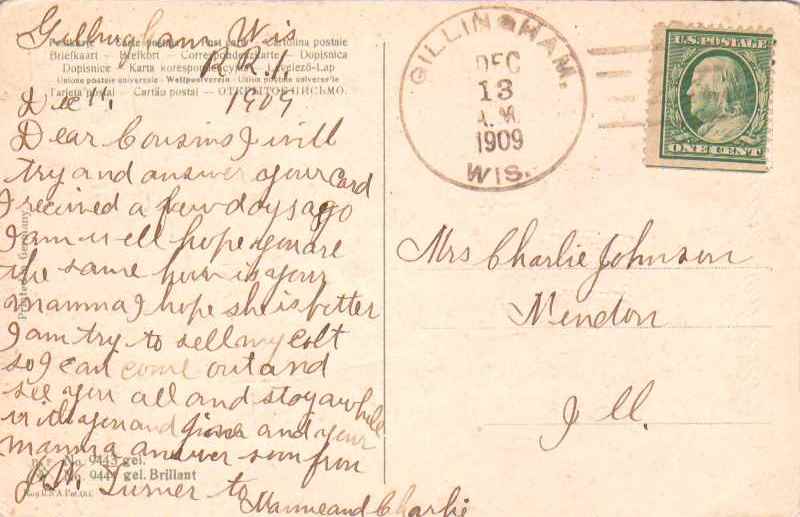 Gillingham Wis
R.R.1.
Postkarte - Carte postale - Post card - Cartolina postale
Briefkaart - Brefkort - Correspondenzkarte - Dopisnica
Dopisnice - Karta korespondencyjna - Levelező-Lap
Union postale universelle - Weltpostverein - Union postale universelle
Tarjeta postal - Cartão postal - ОТКРЫТОЕ ПИСЬМО.
Dec 11, 1909
Dear Cousins I will
try and answer your card
I recived a few days ago
I am well hope you are
the same how is your
mamma I hope she is better
I am try to sell my colt
so I can come out and
see you all and stay awhile
with you and and your
mamma answer soon from
J.W. Turner to
Mamie and Charlie
No. 9445 gel.
No. 944 gel. Brillant
Printed in Germany
GILLINGHAM.
DEC
13
A.M.
1909
WIS.
U.S. POSTAGE
ONE CENT
Mrs Charlie Johnson
Mendon
Ill.